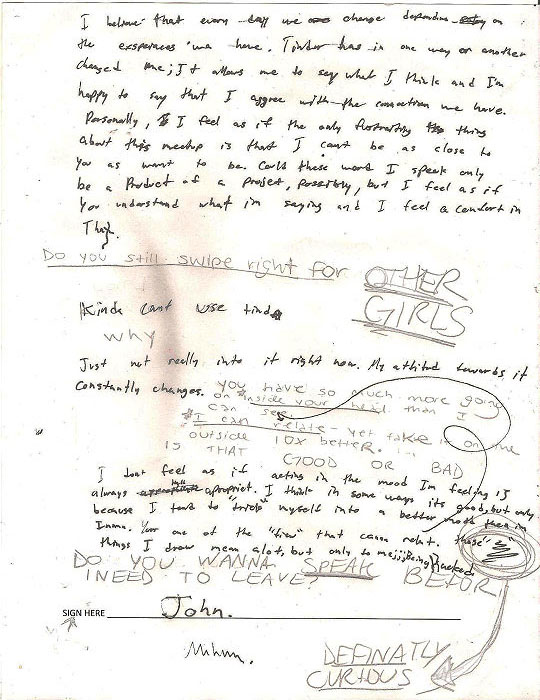 I believe that every day we change depending on
the exsperinces we have. Tinder has in one way or another
changed me; It allows me to say what I think and I'm
happy to say that I aggree with the connection we have.
Personally, I feel as if the only thing
about this meetup is that I cant be as close to
you as want to be. Could these word I speak only
be a Product of a project, possibly, but I feel as if
you understand what im saying and I feel a comfort in

Do you still swipe right for OTHER
GIRLS
Kinda cant use
why
Just not really into it right now. My attitud towards it
constantly changes. you have so much more going
on inside your head than I
can see.
I can relate - yet take it on the
outside 10x better.
IS THAT GOOD OR BAD
I dont feel as if acting in the mood I'm feeling is
always apropriet. I think in some ways its good, but only
because I tend to "trick" myself into a better mood then im
Inna. Your one of the "few" that canna relat. these
things I draw mean alot, but only to me
DO YOU WANNA SPEAK BEFOR
I NEED TO LEAVE?
SIGN HERE John.
DEFINATLY
CURIOUS